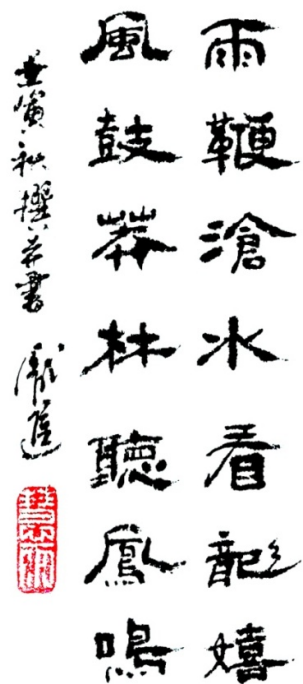 雨鞭滄水看龍嬉
風鼓莽林聽鳳鳴
壬寅秋撰并書